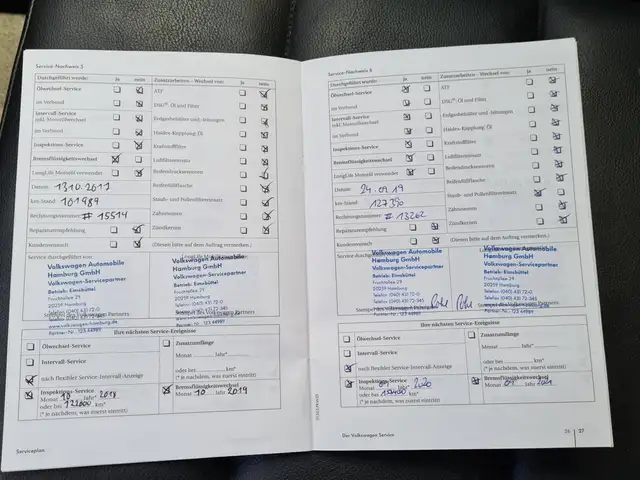 Service-Nachweis 5
Durchgeführt wurde: Ja nein Zusatzarbeiten – Wechsel von: Ja nein
Ölwechsel-Service ATF
im Verbund DSG®-Öl und Filter
Intervall-Service
inkl. Motorölwechsel Erdgasbehälter und -leitungen
im Verbund Haldex-Kupplung Öl
Inspektions-Service Kraftstofffilter
Bremsflüssigkeitswechsel Luftfiltereinsatz
LongLife Motoröl verwendet Bedienelemente
Datum: 13.10.2017 Reifenfüllflasche
km-Stand: 101989 Staub- und Pollenfiltereinsatz
Rechnungsnummer: # 15514 Zahnriemen
Reparaturempfehlung Zündkerzen
Kundenwunsch (Diesen bitte auf dem Auftrag vermerken.)
Service durchgeführt von
Volkswagen Automobile
Hamburg GmbH
Volkswagen-Servicepartner
Betrieb: Eimsbüttel
Fruchtallee 29
20259 Hamburg
Telefon: (040) 431 72-0
Telefax: (040) 431 72-345
www.volkswagen-hamburg.de
Volkswagen Automobile
Hamburg GmbH
Volkswagen-Servicepartner
Betrieb: Eimsbüttel
Fruchtallee 29
20259 Hamburg
Telefon: (040) 431 72-0
Telefax: (040) 431 72-345
Ihre nächsten Service-Ereignisse
Ölwechsel-Service Zusatzumfänge
Intervall-Service Monat Jahr*
nach flexibler Service-Intervall-Anzeige oder bei km*
(* je nachdem, was zuerst eintritt)
Inspektions-Service Bremsflüssigkeitswechsel
Monat 10 Jahr* 2018 Monat 10 Jahr 2019
oder bei km*
(* je nachdem, was zuerst eintritt)
Serviceplan
Service-Nachweis 6
Durchgeführt wurde: Ja nein Zusatzarbeiten – Wechsel von: Ja nein
Ölwechsel-Service ATF
im Verbund DSG®-Öl und Filter
Intervall-Service
inkl. Motorölwechsel Erdgasbehälter und -leitungen
im Verbund Haldex-Kupplung Öl
Inspektions-Service Kraftstofffilter
Bremsflüssigkeitswechsel Luftfiltereinsatz
LongLife Motoröl verwendet
Datum: 24.09.19 Reifenfüllflasche
km-Stand: 127390 Staub- und Pollenfiltereinsatz
Rechnungsnummer: # 13262 Zahnriemen
Reparaturempfehlung Zündkerzen
Kundenwunsch (Diesen bitte auf dem Auftrag vermerken.)
Volkswagen Automobile
Hamburg GmbH
Volkswagen-Servicepartner
Betrieb: Eimsbüttel
Fruchtallee 29
20259 Hamburg
Telefon: (040) 431 72-0
Telefax: (040) 431 72-345
Volkswagen Automobile
Hamburg GmbH
Volkswagen-Servicepartner
Betrieb: Eimsbüttel
Fruchtallee 29
20259 Hamburg
Telefon: (040) 431 72-0
Telefax: (040) 431 72-345
Ihre nächsten Service-Ereignisse
Ölwechsel-Service Zusatzumfänge
Intervall-Service Monat Jahr*
nach flexibler Service-Intervall-Anzeige oder bei km*
(* je nachdem, was zuerst eintritt)
Inspektions-Service Bremsflüssigkeitswechsel
Monat Jahr* 2020 Monat Jahr
oder bei km*
(* je nachdem, was zuerst eintritt)
Der Volkswagen Service
26 27